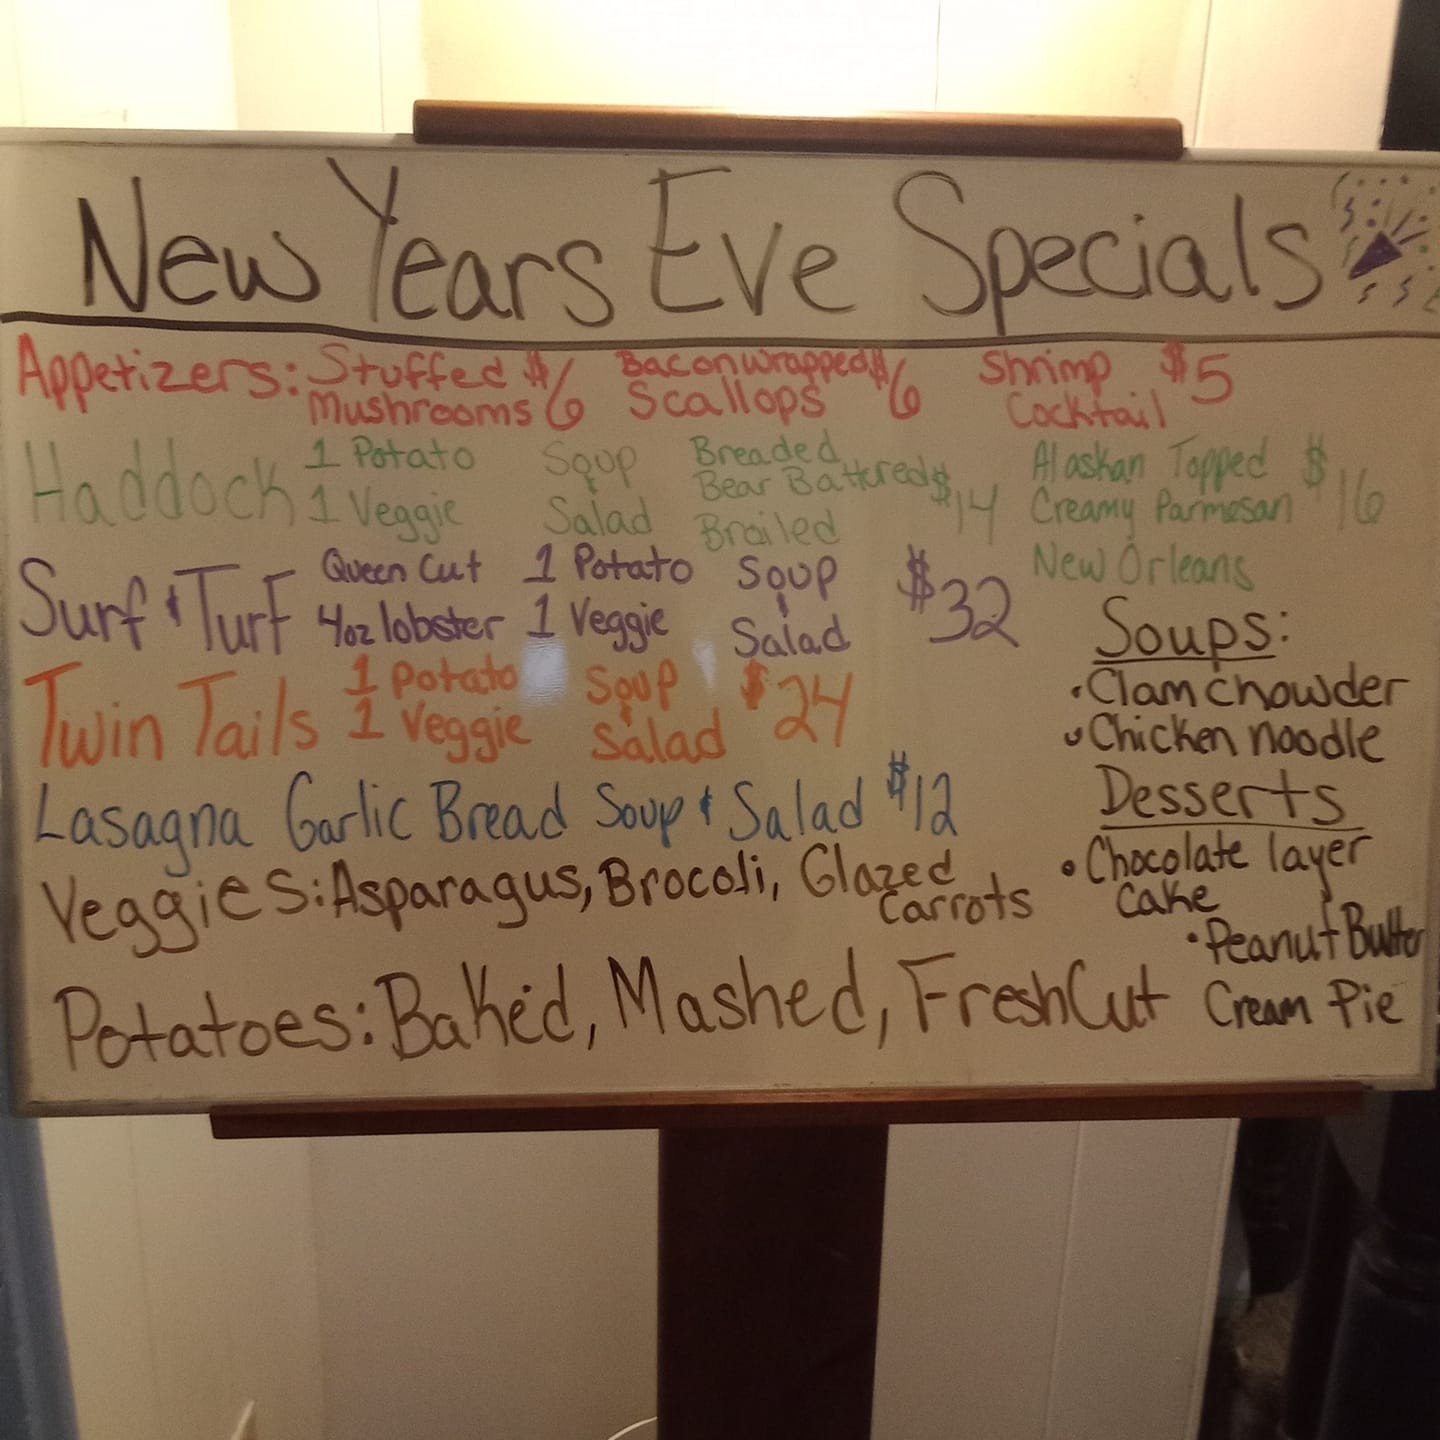 New Years Eve Specials
Appetizers: Stuffed Mushrooms $6 Bacon wrapped Scallops $6 Shrimp Cocktail $5
Haddock 1 Potato 1 Veggie Soup & Salad Breaded Bear Battured Broiled $14 Alaskan Topped Creamy Parmesan New Orleans $16
Surf & Turf Queen Cut 4oz lobster 1 Potato 1 Veggie Soup & Salad $32
Twin Tails 1 Potato 1 Veggie Soup & Salad $24
Lasagna Garlic Bread Soup & Salad $12
Veggies: Asparagus, Brocoli, Glazed Carrots
Potatoes: Baked, Mashed, Fresh Cut
Soups:
• Clam chowder
• Chicken noodle
Desserts
• Chocolate layer
cake
• Peanut Butter
Cream Pie